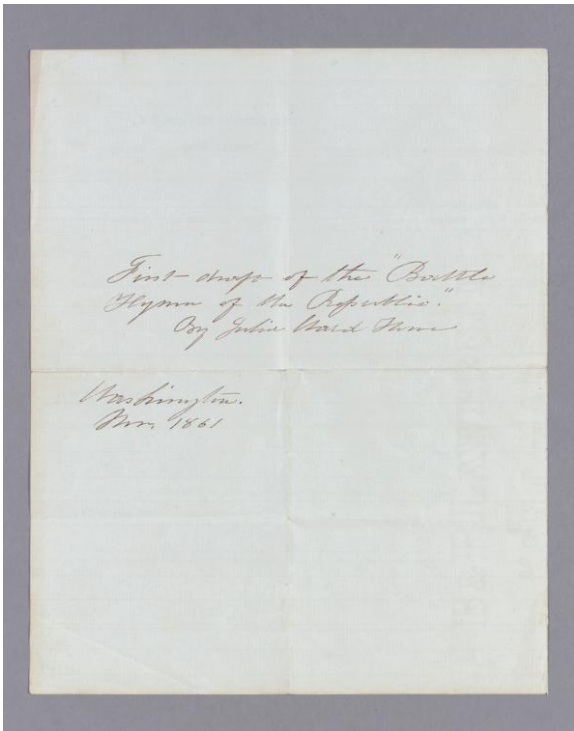 First draft of the "Battle
Hymn of the Republic."
By Julia Ward Howe
Washington.
Nov. 1861